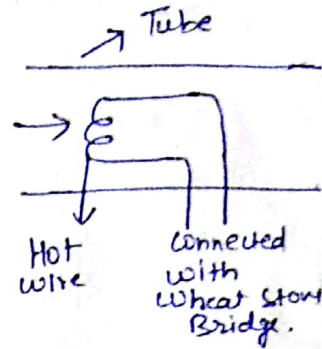 Tube
Hot
wire
Connected
with
Wheat ston
Bridge.